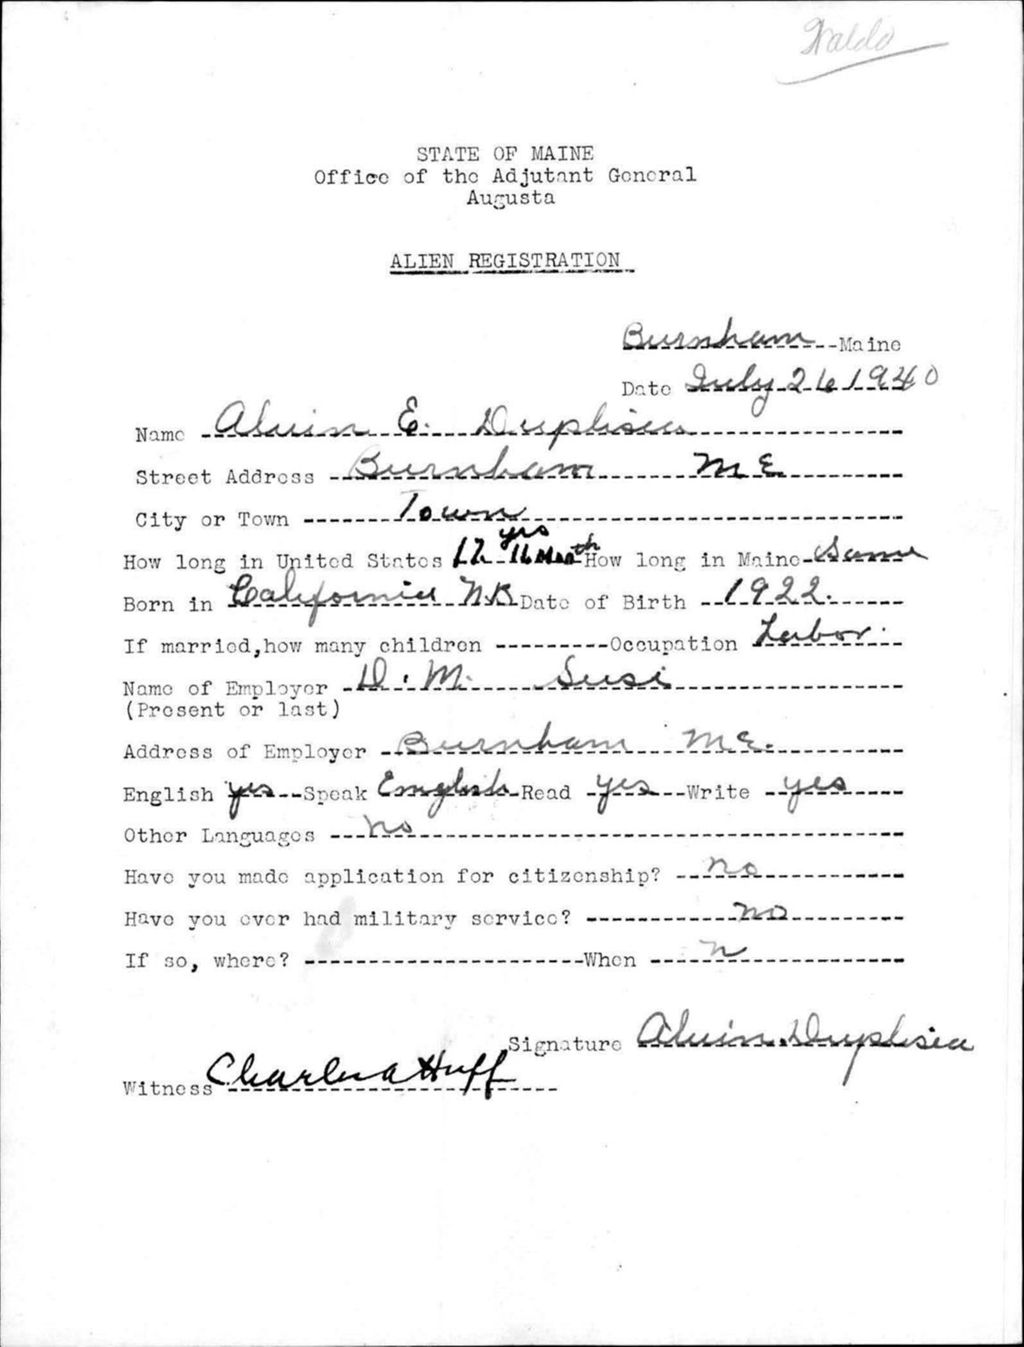 Waldo
STATE OF MAINE
Office of the Adjutant General
Augusta
ALIEN REGISTRATION
Burnham Maine
Date July 26 1940
Name Alvin E. Duplisea
Street Address Burnham ME
City or Town Town
How long in United States yrs 11 Month How long in Maine Same
Born in California N.B Date of Birth 1922.
If married, how many children Occupation Labor.
Name of Employer D. M. Susi
(Present or last)
Address of Employer Burnham ME.
English yes Speak English Read yes Write yes
Other Languages no
Have you made application for citizenship? no
Have you ever had military service? no
If so, where? When n
Signature Alvin. Duplisea
Witness Charles A Huff